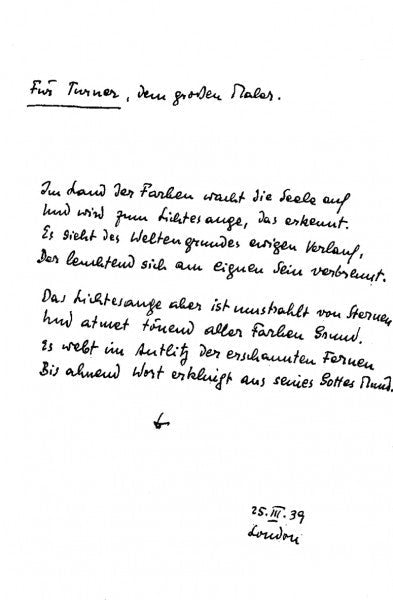 Für Turner, dem großen Maler.
Im Land der Farben wacht die Seele auf
Und wird zum Lichtesauge, das erkennt.
Es sieht des Weltengrundes ewigen Verlauf,
Der leuchtend sich am eignen Sein verbrennt.
Das Lichtesauge aber ist umstrahlt von Sternen
Und atmet tönend aller Farben Grund.
Es webt im Antlitz der erschauten Fernen
Bis ahnend Wort erklingt aus seines Gottes Mund.
25.III.39
London